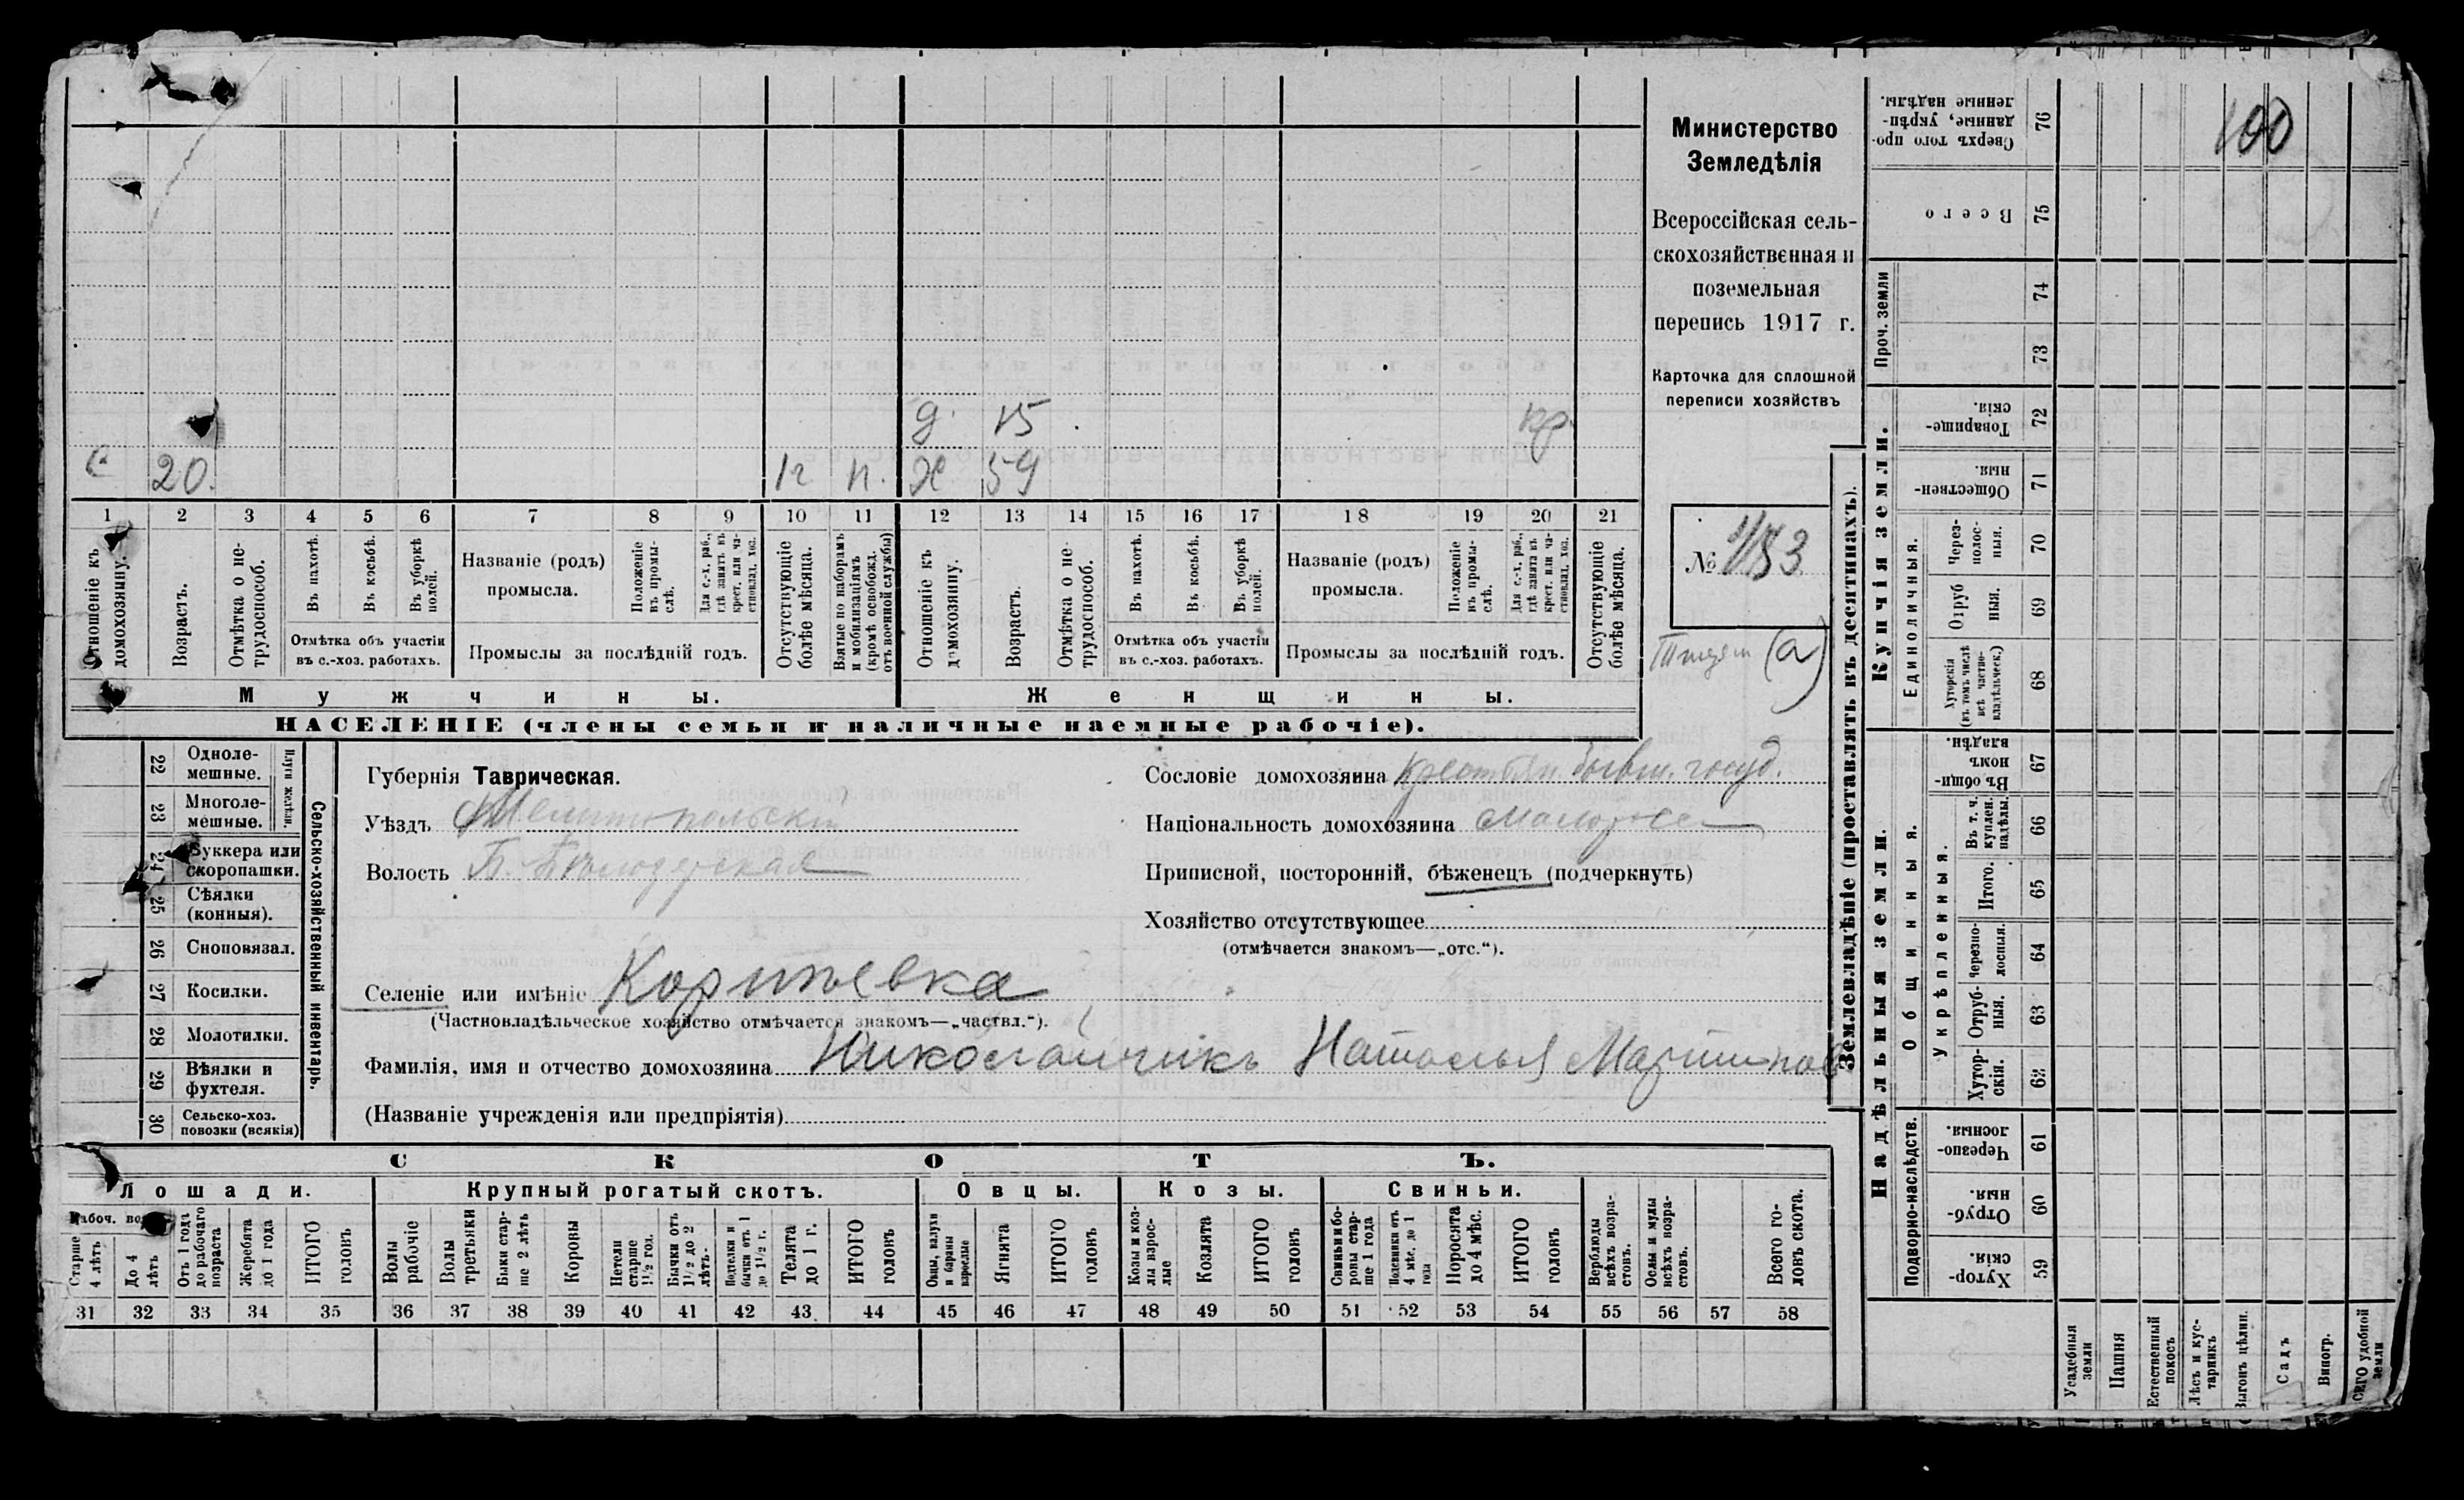 Министерство
Земледѣлія
Всероссійская сель-
скохозяйственная и
поземельная
перепись 1917 г.
Карточка для сплошной
переписи хозяйствъ
№
(а)
д. 15 кр.
с 20. п. Ж 59
1 2 3 4 5 6 7 8 9 10 11 12 13 14 15 16 17 18 19 20 21
Отношеніе къ домохозяину.
Возрастъ.
Отмѣтка о не-трудоспособ.
Въ пахотѣ.
Въ косьбѣ.
Въ уборкѣ полей.
Отмѣтка объ участіи
въ с.-хоз. работахъ.
Названіе (родъ)
промысла.
Положеніе въ промы-слѣ.
Для с.-х. раб., гдѣ занятъ въ крест. или ча-стновлад. хоз.
Промыслы за послѣдній годъ.
Отсутствующіе болѣе мѣсяца.
Взятые по наборамъ и мобилизаціямъ (кромѣ освобожд. отъ военной службы)
Отношеніе къ домохозяину.
Возрастъ.
Отмѣтка о не-трудоспособ.
Въ пахотѣ.
Въ косьбѣ.
Въ уборкѣ полей.
Отмѣтка объ участіи
въ с.-хоз. работахъ.
Названіе (родъ)
промысла.
Положеніе въ промы-слѣ.
Для с.-х. раб., гдѣ занята въ крест. или ча-стновлад. хоз.
Промыслы за послѣдній годъ.
Отсутствующіе болѣе мѣсяца.
Мужчины.
Женщины.
НАСЕЛЕНІЕ (члены семьи и наличные наемные рабочіе).
22 Одноле-мешные.
23 Многоле-мешные.
Плуги желѣзн.
24 Буккера или скоропашки.
25 Сѣялки (конныя).
26 Сноповязал.
27 Косилки.
28 Молотилки.
29 Вѣялки и фухтеля.
30 Сельско-хоз. повозки (всякія)
Сельско-хозяйственный инвентарь.
Губернія Таврическая.
Уѣздъ Мелитопольскій
Волость Б. Бѣлозерская
Сословіе домохозяина Крестьян бывш. госуд.
Національность домохозяина малорос
Приписной, посторонній, бѣженецъ (подчеркнуть)
Хозяйство отсутствующее
(отмѣчается знакомъ—„отс.“).
Селеніе или имѣніе
(Частновладѣльческое хозяйство отмѣчается знакомъ—„частвл.“).
Фамилія, имя и отчество домохозяина Николайчикъ Наталья Мартинов
(Названіе учрежденія или предпріятія)
СКОТЪ.
Лошади.
Крупный рогатый скотъ.
Овцы.
Козы.
Свиньи.
Рабоч.
Старше 4 лѣтъ
До 4 лѣтъ
Отъ 1 года до рабочаго возраста
Жеребята до 1 года
ИТОГО головъ
Волы рабочіе
Волы третьяки
Быки стар-ше 2 лѣтъ
Коровы
Нетели старше 1½ год.
Бычки отъ 1½ до 2 лѣтъ.
Подтелки и бычки отъ 1 до 1½ г.
Телята до 1 г.
ИТОГО головъ
Овцы, валухи и бараны взрослые
Ягнята
ИТОГО головъ
Козы и коз-лы взрос-лые
Козлята
ИТОГО головъ
Свиньи и бо-ровы стар-ше 1 года
Подсвинки отъ 4 мѣс. до 1 года
Поросята до 4 мѣс.
ИТОГО головъ
Верблюды всѣхъ возра-стовъ.
Ослы и мулы всѣхъ возра-стовъ.
Всего го-ловъ скота.
31 32 33 34 35 36 37 38 39 40 41 42 43 44 45 46 47 48 49 50 51 52 53 54 55 56 57 58
Землевладѣніе (проставлять въ десятинахъ).
Купчія земли.
Надѣльныя земли.
Сверхъ того про-данные, укрѣп-ленные надѣлы. 76
100
Всего 75
Проч. земли
74
73
Товарище-скія. 72
Обществен-ныя. 71
Единоличныя.
Через-полос-ныя. 70
Отруб ныя. 69
Хуторскія (въ томъ числѣ всѣ частно-владѣльческ.) 68
Общинныя.
Въ общи-номъ владѣн. 67
Укрѣпленныя.
Въ т. ч. куплен. надѣлы. 66
Итого. 65
Черезпо-лосныя. 64
Отруб-ныя. 63
Хутор-скія. 62
Подворно-наслѣдств.
Черезпо-лосныя. 61
Отруб-ныя. 60
Хутор-скія. 59
Усадебныя земли
Пашня
Естественный покосъ
Лѣсъ и кус-тарникъ
Выгонъ цѣлин.
Садъ
Виногр.
СЕГО удобной земли